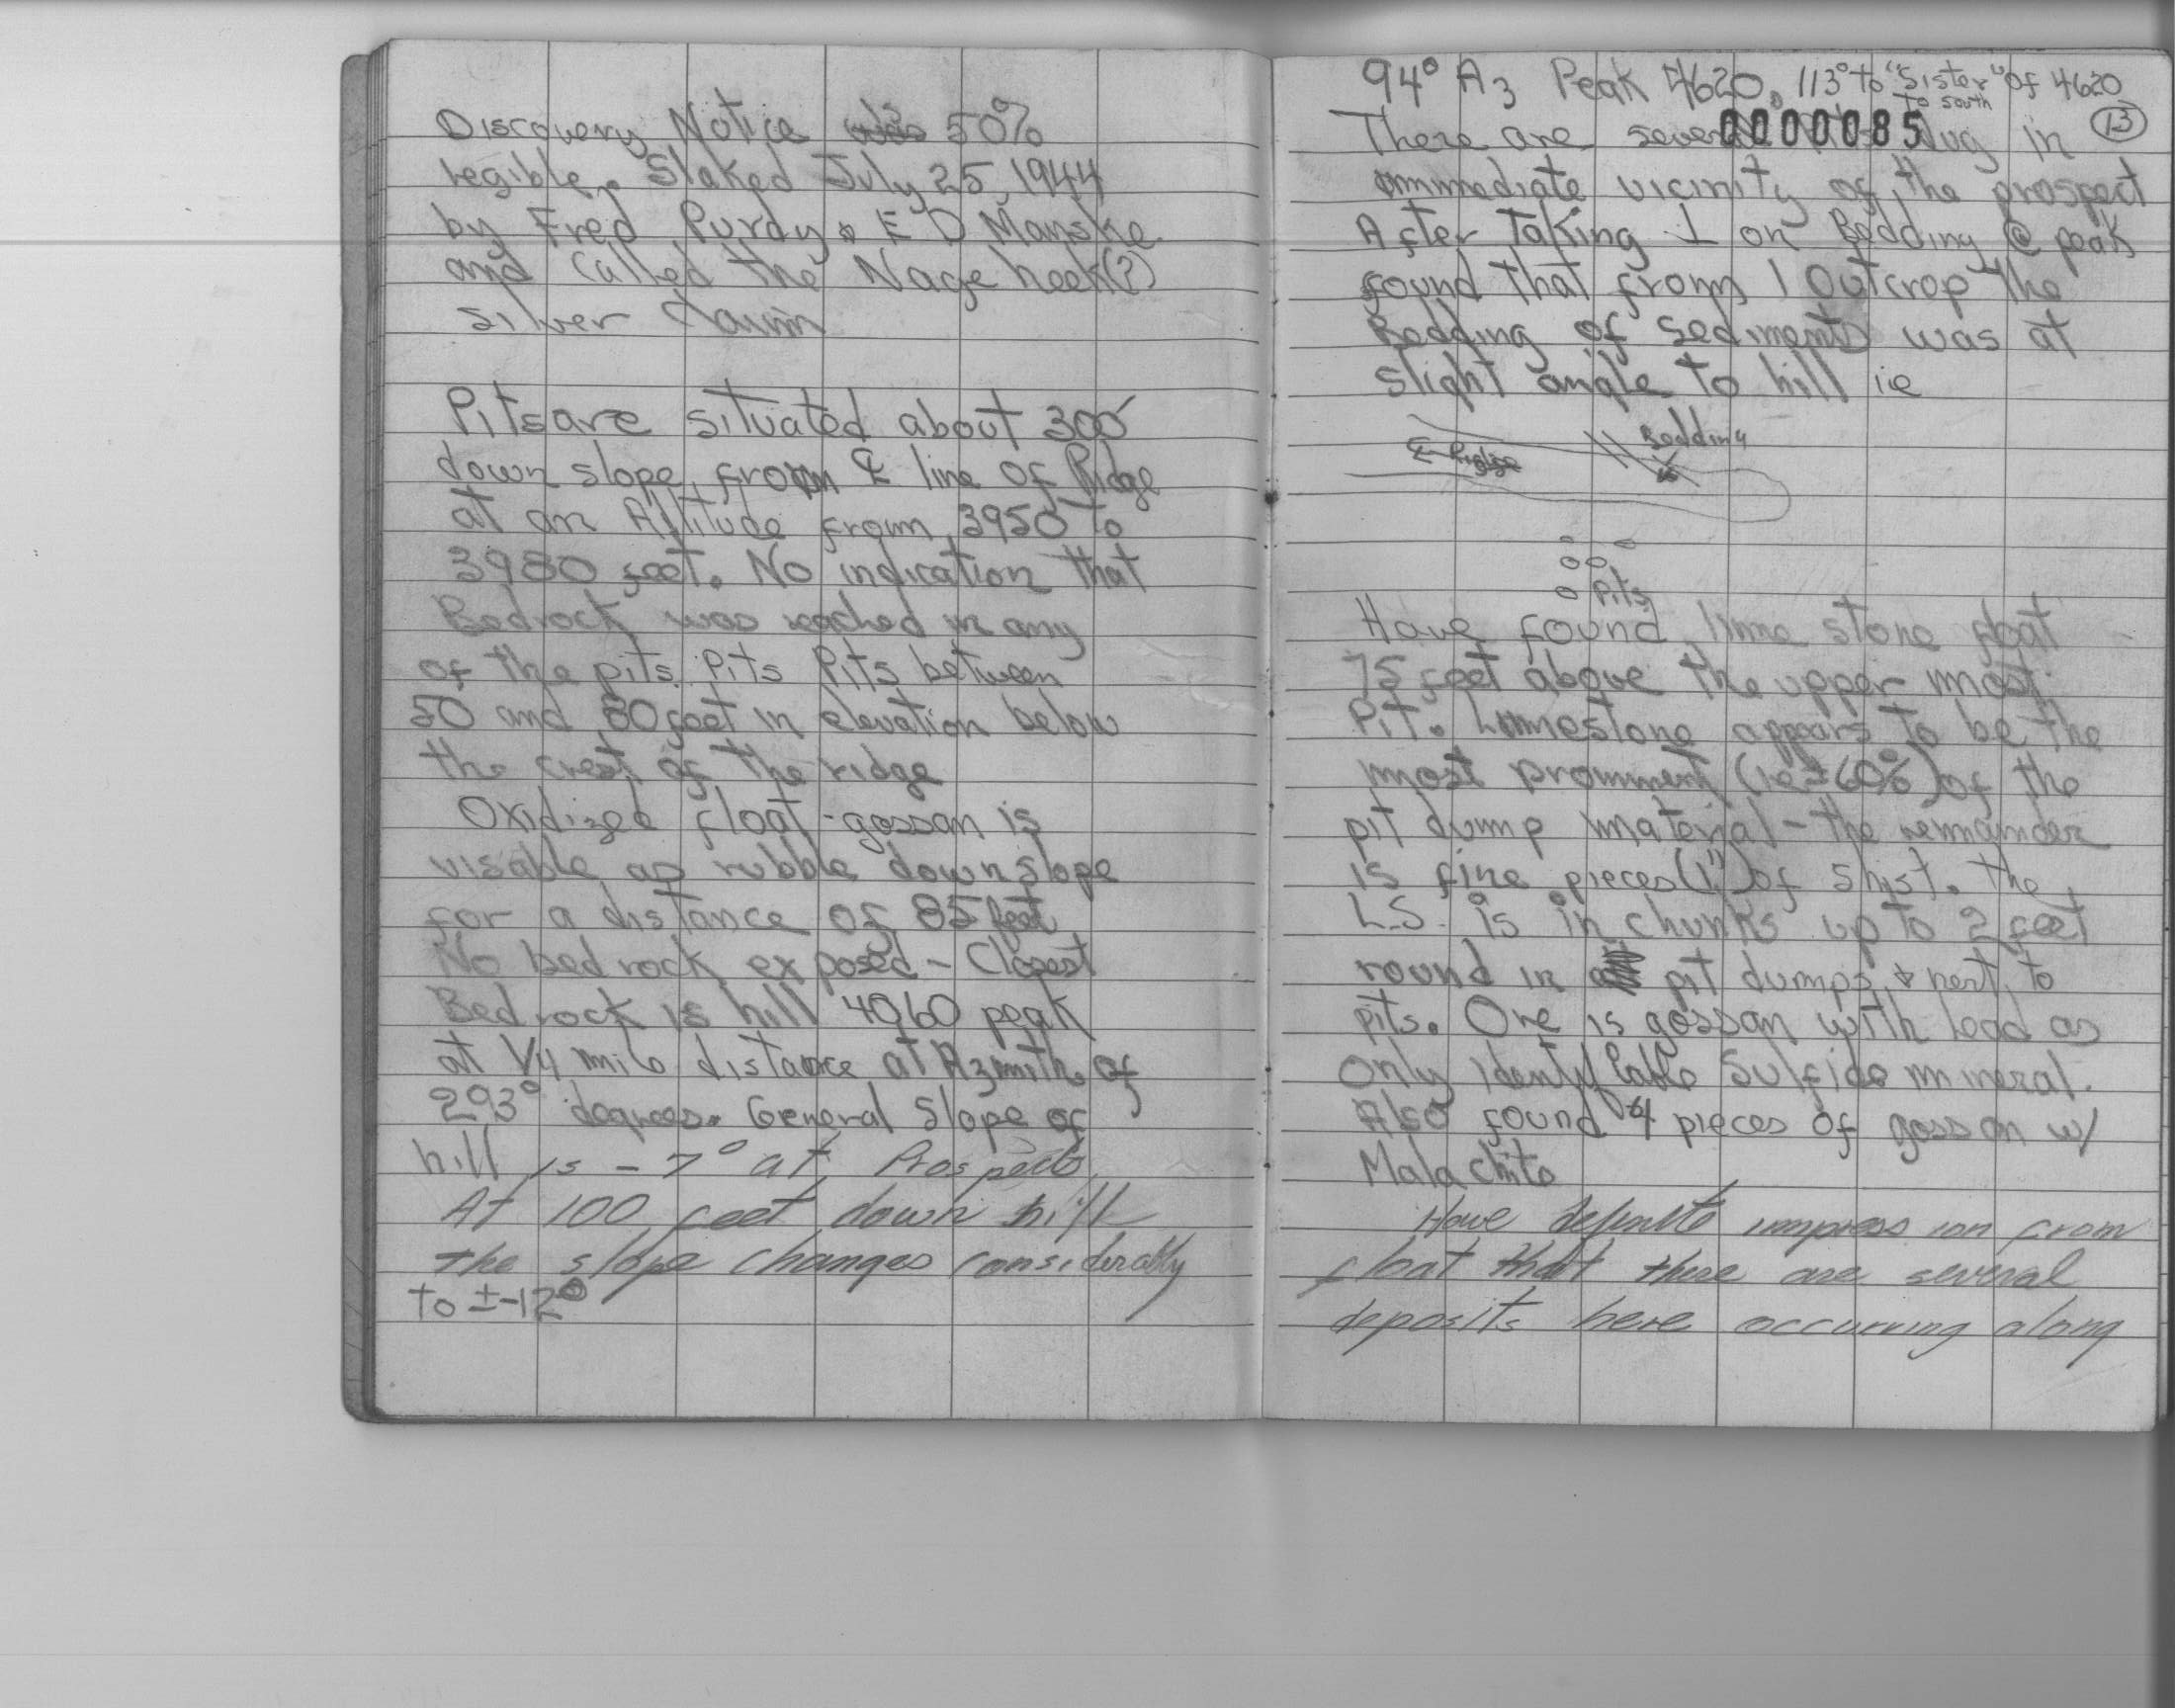 Discovery Notice is 50%
legible. Staked July 25, 1944
by Fred Purdy & E D Manske
and called the Nage heek(?)
silver claim
Pits are situated about 300'
down slope from ℄ line of Ridge
at an Altitude from 3950 to
3980 feet. No indication that
Bedrock was reached in any
of the pits. Pits Pits between
50 and 80 feet in elevation below
the crest of the ridge
Oxidized float-gossan is
visable as rubble down slope
for a distance of 85 feet
No bedrock exposed - Closest
Bedrock is hill 4060 peak
at 1/4 mile distance at Azmith of
293° degrees. General Slope of
hill is -7° at Prospects
At 100 feet down hill
the slope changes considerably
to ±-12°
94° Az Peak 4620. 113° to "Sister" of 4620
to south
0000085
13
There are several dug in
immediate vicinity of the prospect
After Taking ⊥ on Bedding @ peak
found that from 1 outcrop the
Bedding of sediments was at
slight angle to hill ie
℄ Ridge
Bedding
Pits
Have found lime stone float
75 feet above the upper most
Pit. Limestone appears to be the
most prominent (ie ±60%) of the
pit dump material - the remainder
is fine pieces (1") of shist. The
L.S. is in chunks up to 2 feet
round in pit dumps & next to
pits. Ore is gossan with lead as
only identifiable Sulfide mineral.
Also found 4 pieces of gossan w/
Malachite
Have definite impression from
float that there are several
deposits here occurring along